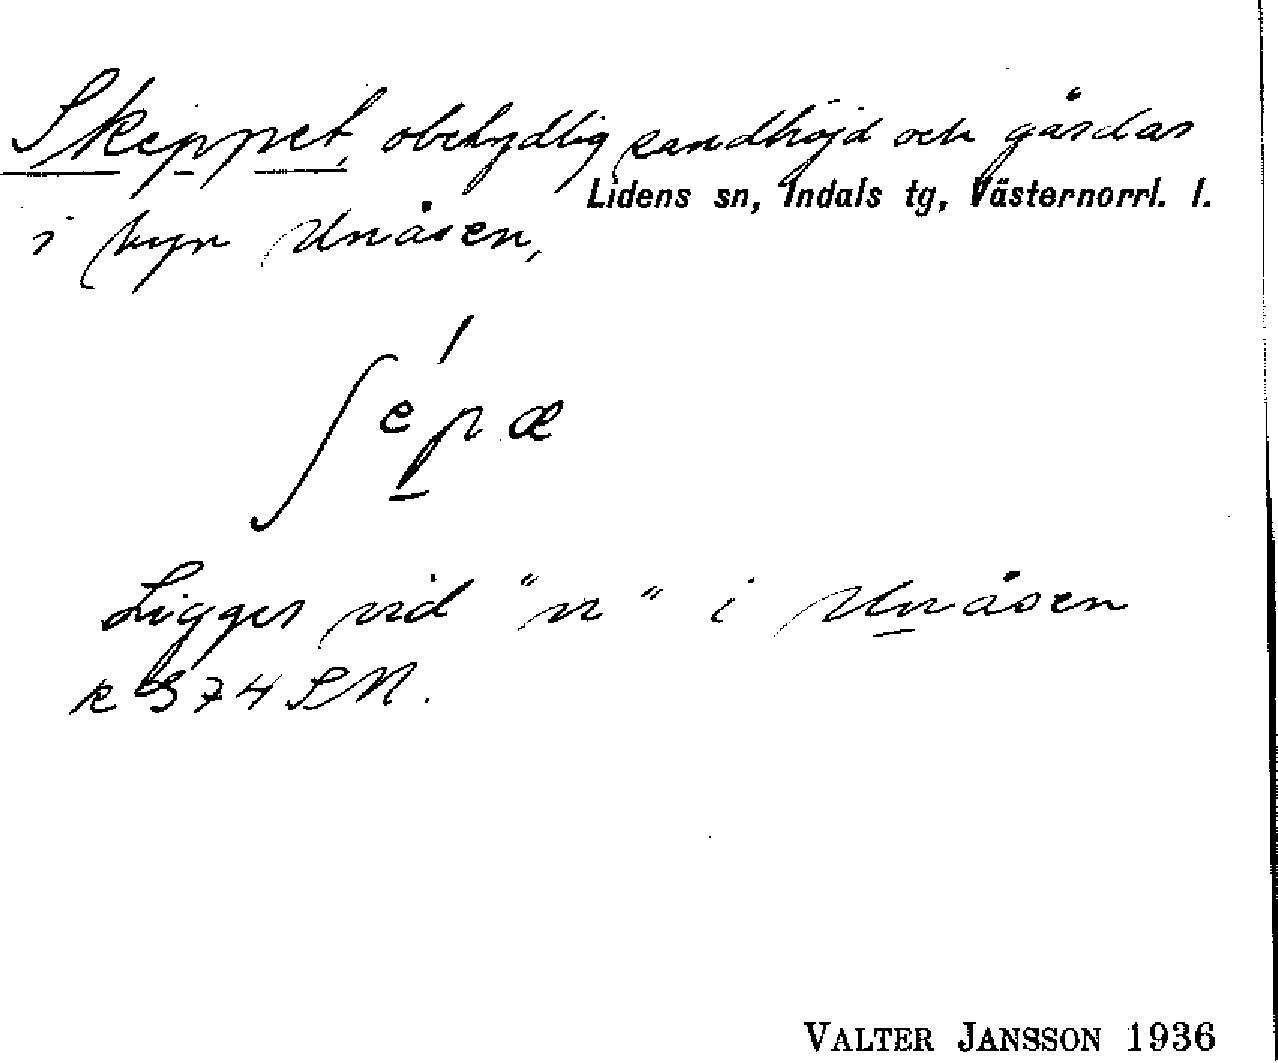 Skeppet, obetydlig sandhöjd och gårdar
Lidens sn, Indals tg, Västernorrl. l.
i byn Unåsen,
ʃepæ
Ligger vid "n" i Unåsen
k 374 SN.
VALTER JANSSON 1936